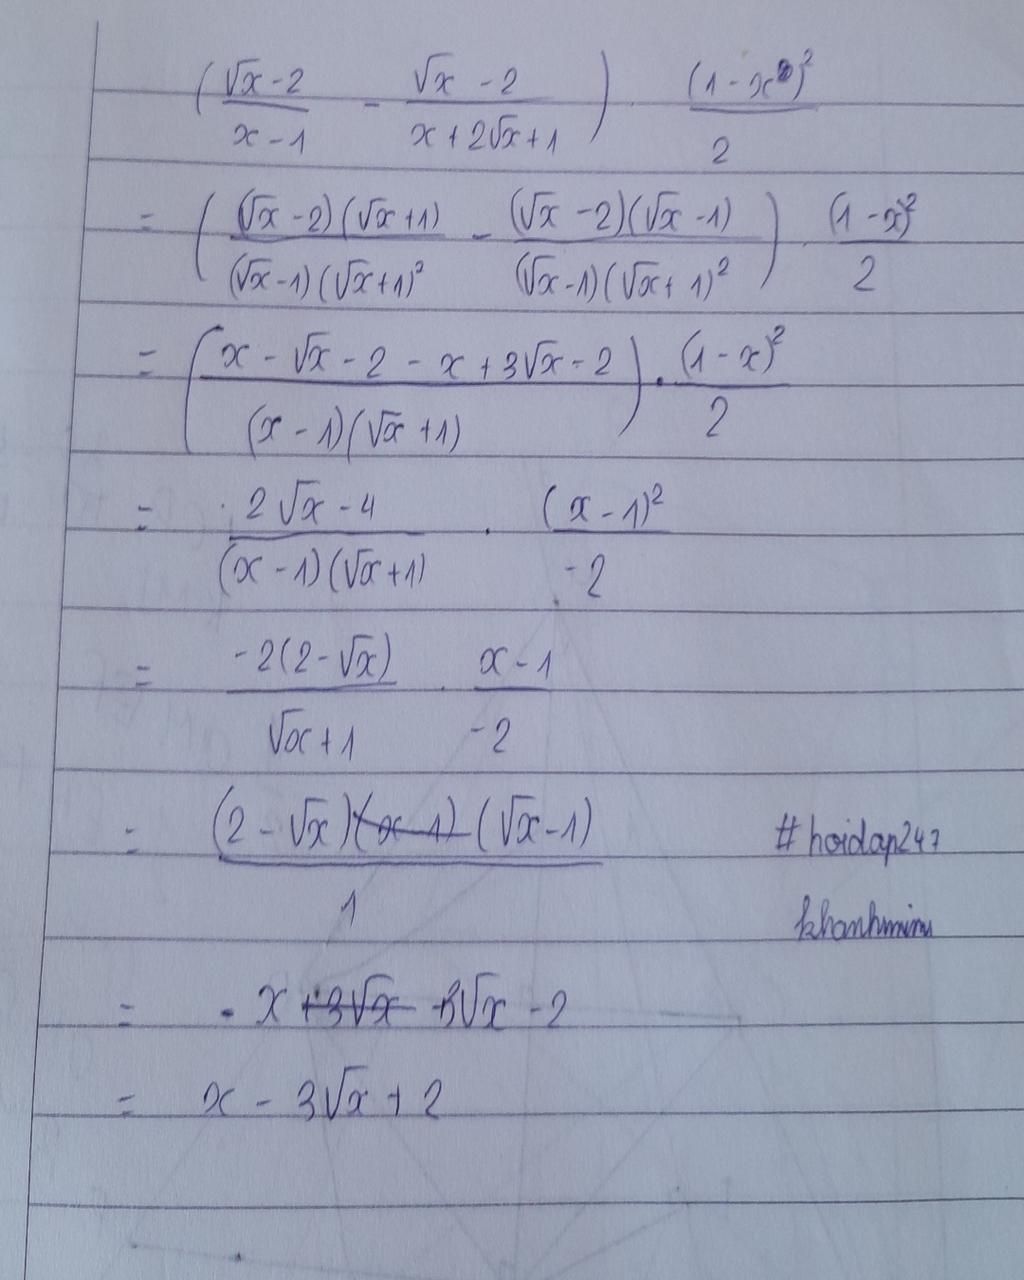 (√x - 2 / x - 1 - √x - 2 / x + 2√x + 1) . (1 - x)² / 2
= ((√x - 2)(√x + 1) / (√x - 1)(√x + 1)² - (√x - 2)(√x - 1) / (√x - 1)(√x + 1)²) . (1 - x)² / 2
= (x - √x - 2 - x + 3√x - 2 / (x - 1)(√x + 1)) . (1 - x)² / 2
= 2√x - 4 / (x - 1)(√x + 1) . (x - 1)² / -2
= -2(2 - √x) / √x + 1 . x - 1 / -2
= (2 - √x)(x - 1)(√x - 1) / 1
#hoidap247
= - x + 3√x √x - 2
= x - 3√x + 2